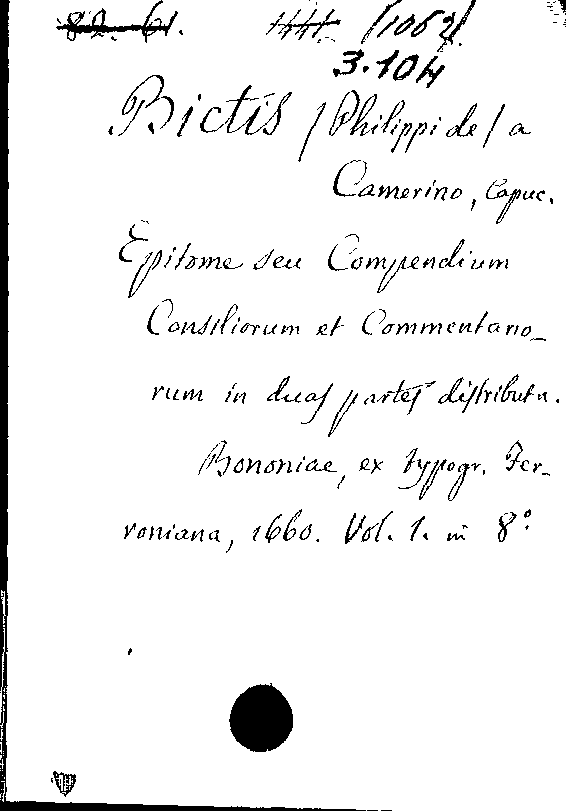 82. 61. 1441 /1062/
3.104
Bictis /Philippi de/ a
Camerino, Capuc.
Epitome seu Compendium
Consiliorum et Commentario-
rum in duas partes distributa.
Bononiae, ex typogr. Fer-
roniana, 1660. Vol. 1. in 8°